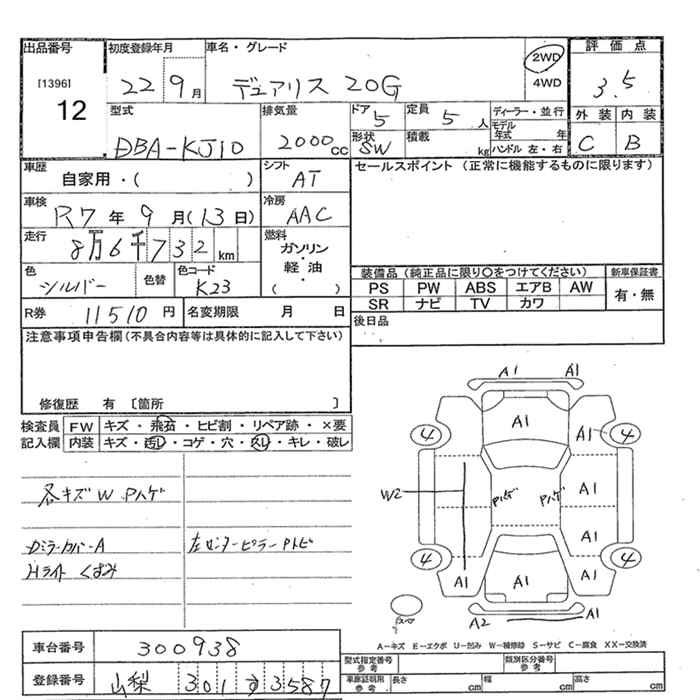 出品番号 初度登録年月 車名・グレード 2WD 評価点
[1396] 22 9月 デュアリス 20G 4WD 3.5
12 型式 排気量 ドア 定員 ディーラー・並行 外装 内装
DBA-KJ10 2000cc 5 5人 モデル年式 年 C B
形状 SW 積載 kg ハンドル 左・右
車歴 シフト セールスポイント (正常に機能するものに限ります)
自家用・( ) AT
車検 冷房
R7年9月(13日) AAC
走行 燃料
8万6千732km ガソリン・軽油・( )
色 色替 色コード 装備品 (純正品に限り〇をつけてください) 新車保証書
シルバー K23 PS PW ABS エアB AW 有・無
SR ナビ TV カワ
R券 11510円 名変期限 月 日 後日品
注意事項申告欄(不具合内容等は具体的に記入して下さい)
修復歴 有 〔箇所 〕
検査員 FW キズ・飛石・ヒビ割・リペア跡・×要
記入欄 内装 キズ・汚れ・コゲ・穴・スレ・キレ・破レ
各キズW Pハゲ
Dミラーカバー A
Hライト くすみ
左センターピラー Pトビ
A1 A1
4 A1 A1 4
W2 Pハゲ Pハゲ A1
A1
4 A1 A1 A1 4
A2 A1
A-キズ E-エクボ U-凹み W-補修跡 S-サビ C-腐食 XX-交換済
車台番号 300938
登録番号 山梨 301 す 3587
型式指定番号 参考 類別区分番号 参考
車庫証明用 参考 長さ cm 幅 cm 高さ cm